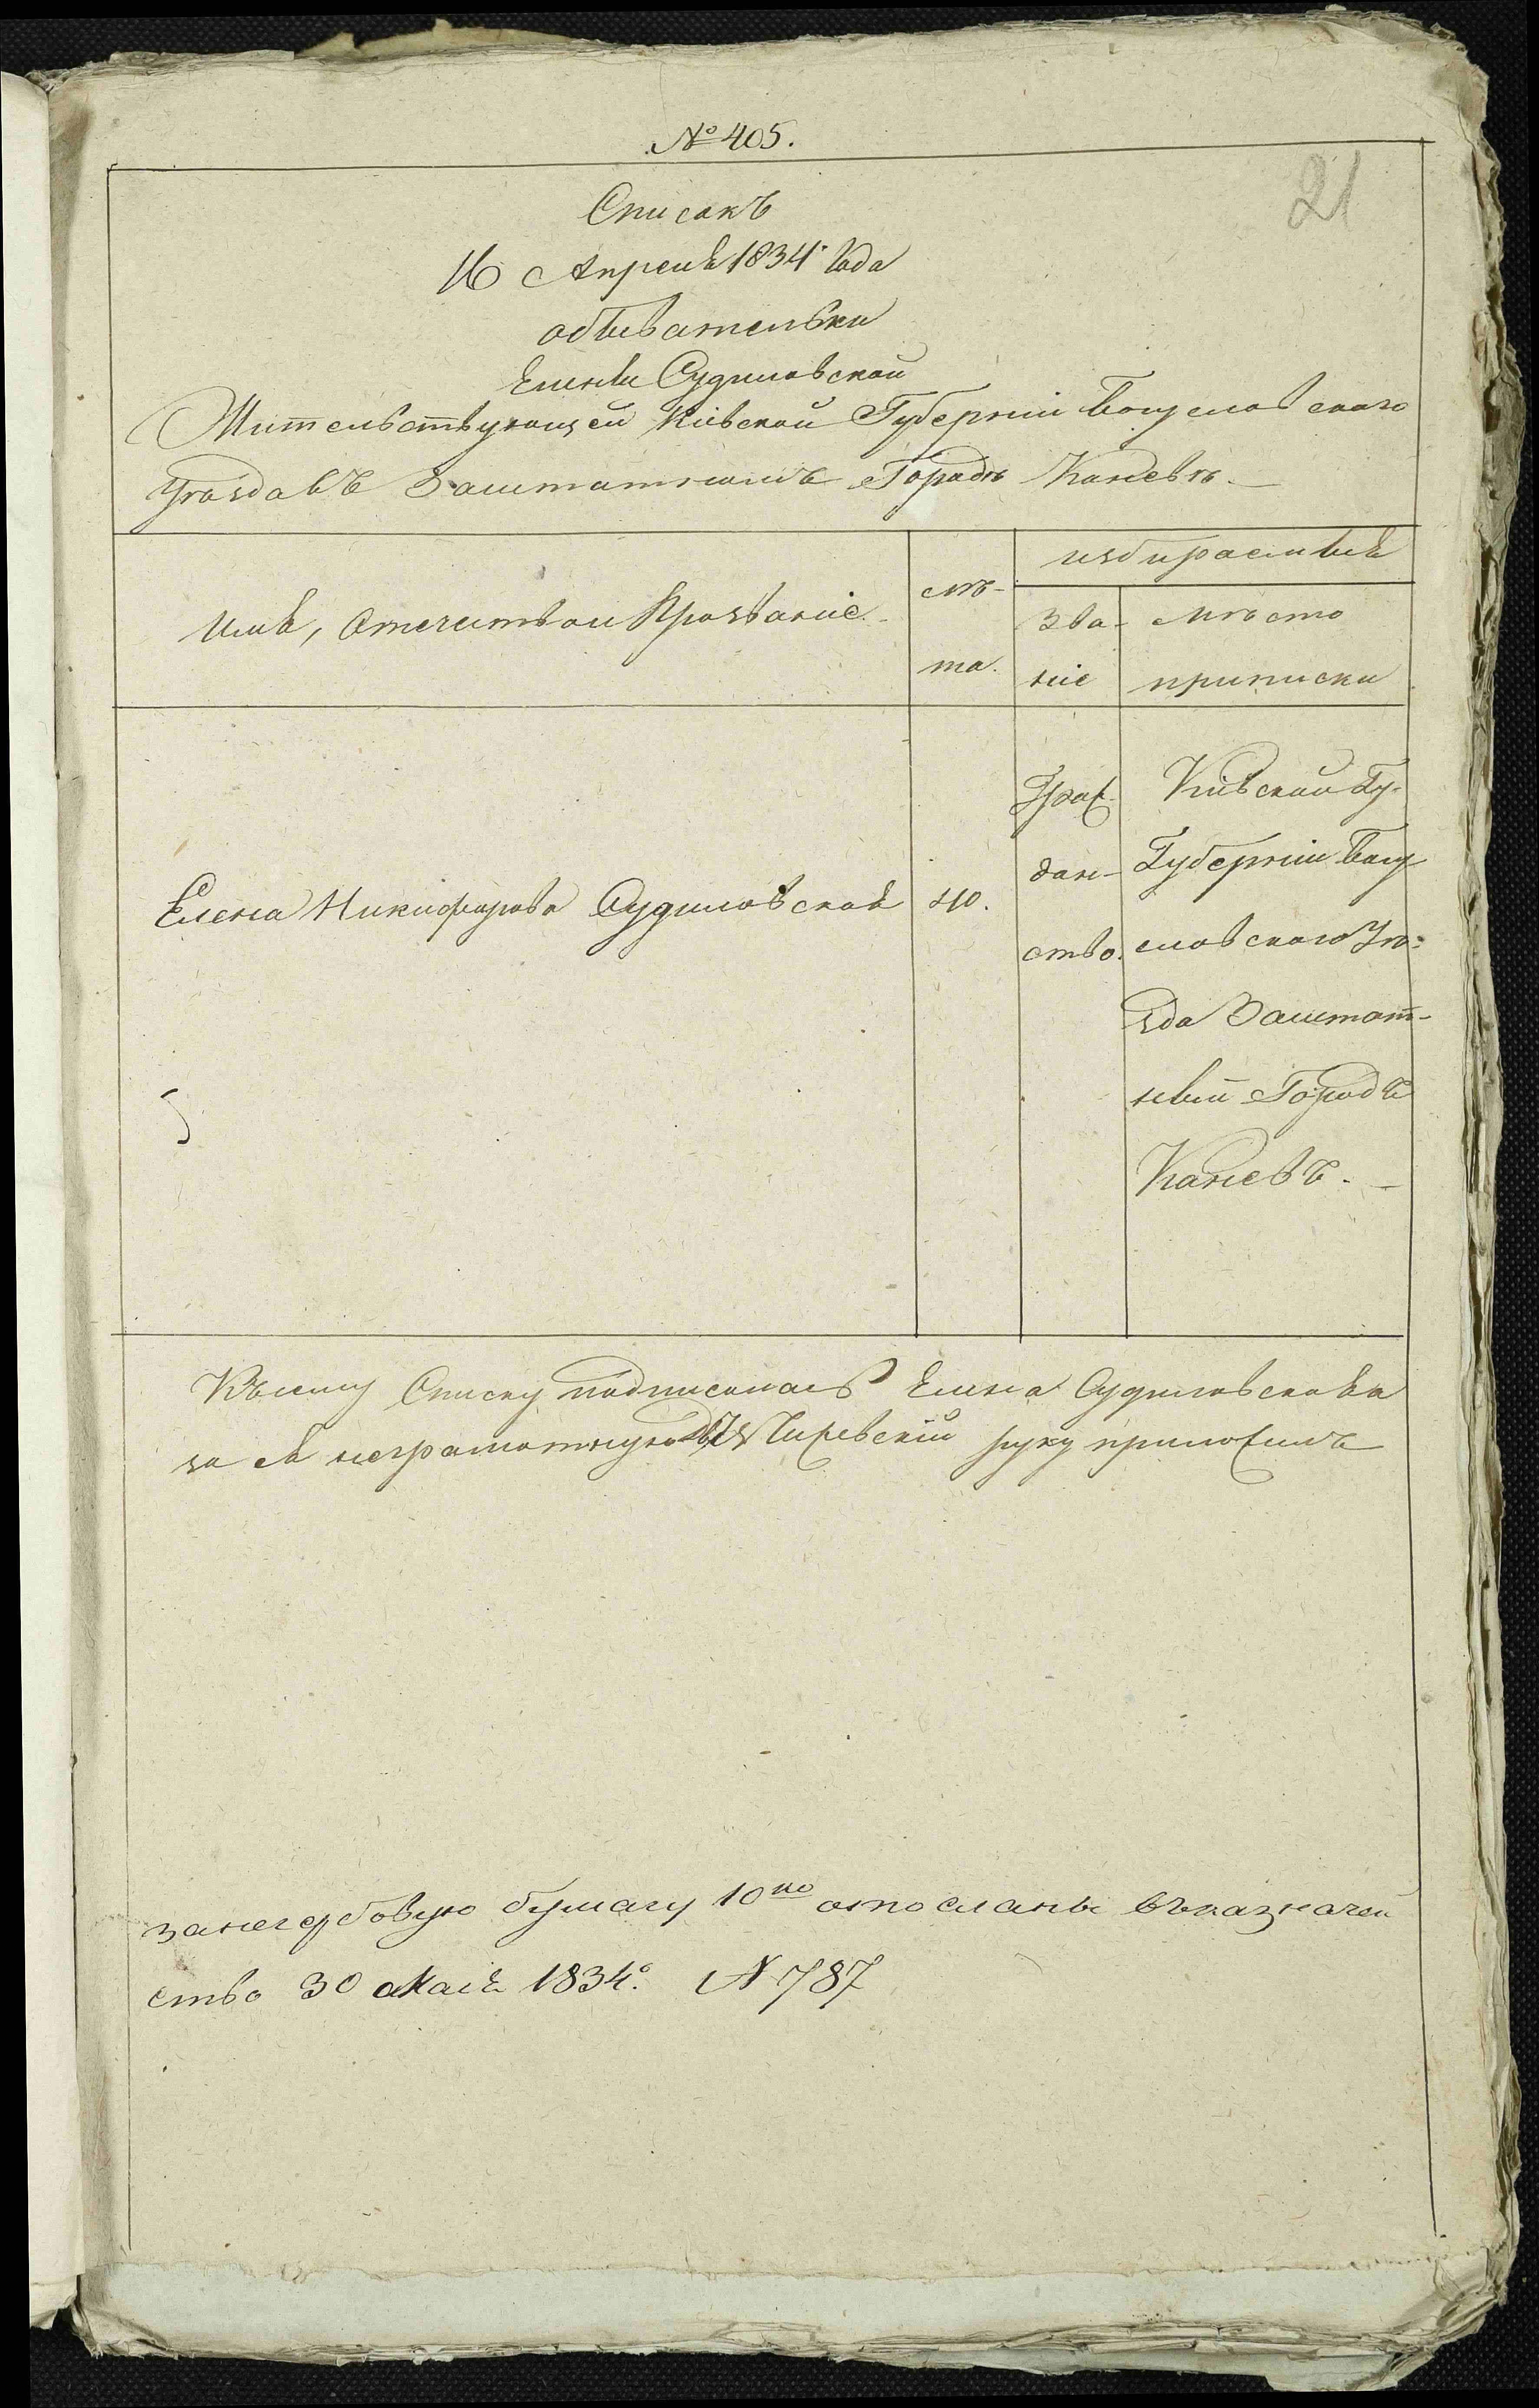 № 405.
21
Списокъ
16 Апреля 1834. Года
обывательки
Елены Судиловской
Жительствующей Кіевской Губерніи Богуславского
Уѣзда въ Заштатномъ Городѣ Каневѣ.
Имя, Отечество и Прозваніе.
лѣ-
та.
избираемыя
Зва-
ніе
мѣсто
приписки
Елена Никифорова Судиловская
40.
Граж-
дан-
ство.
Кіевской Гу-
Губерніи Богу-
славского Уѣ-
зда Заштат-
ный Городъ
Каневъ.
Къ сему Списку подписалась Елена Судиловская а
за ея неграмотную руку приложилъ
за негербовую бумагу 10 отосланы въ казначей
ство 30 Мая 1834. № 787